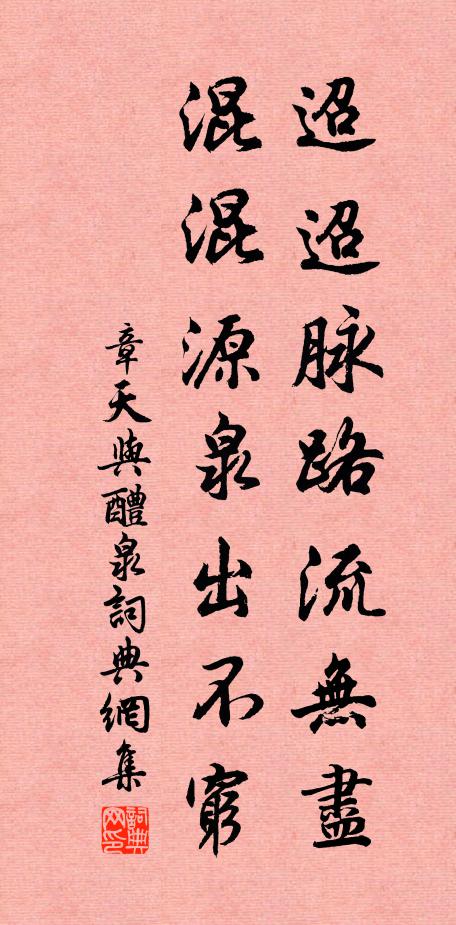 迢迢脉路流無盡
混混源泉出不窮
章天與醴泉詞典網集
詞典网印